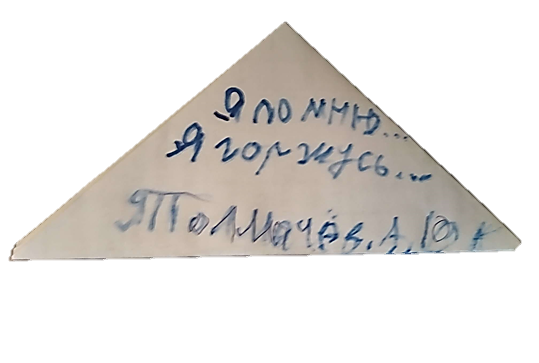 Я помню...
Я горжусь...
Толмачёв. А. 10 к